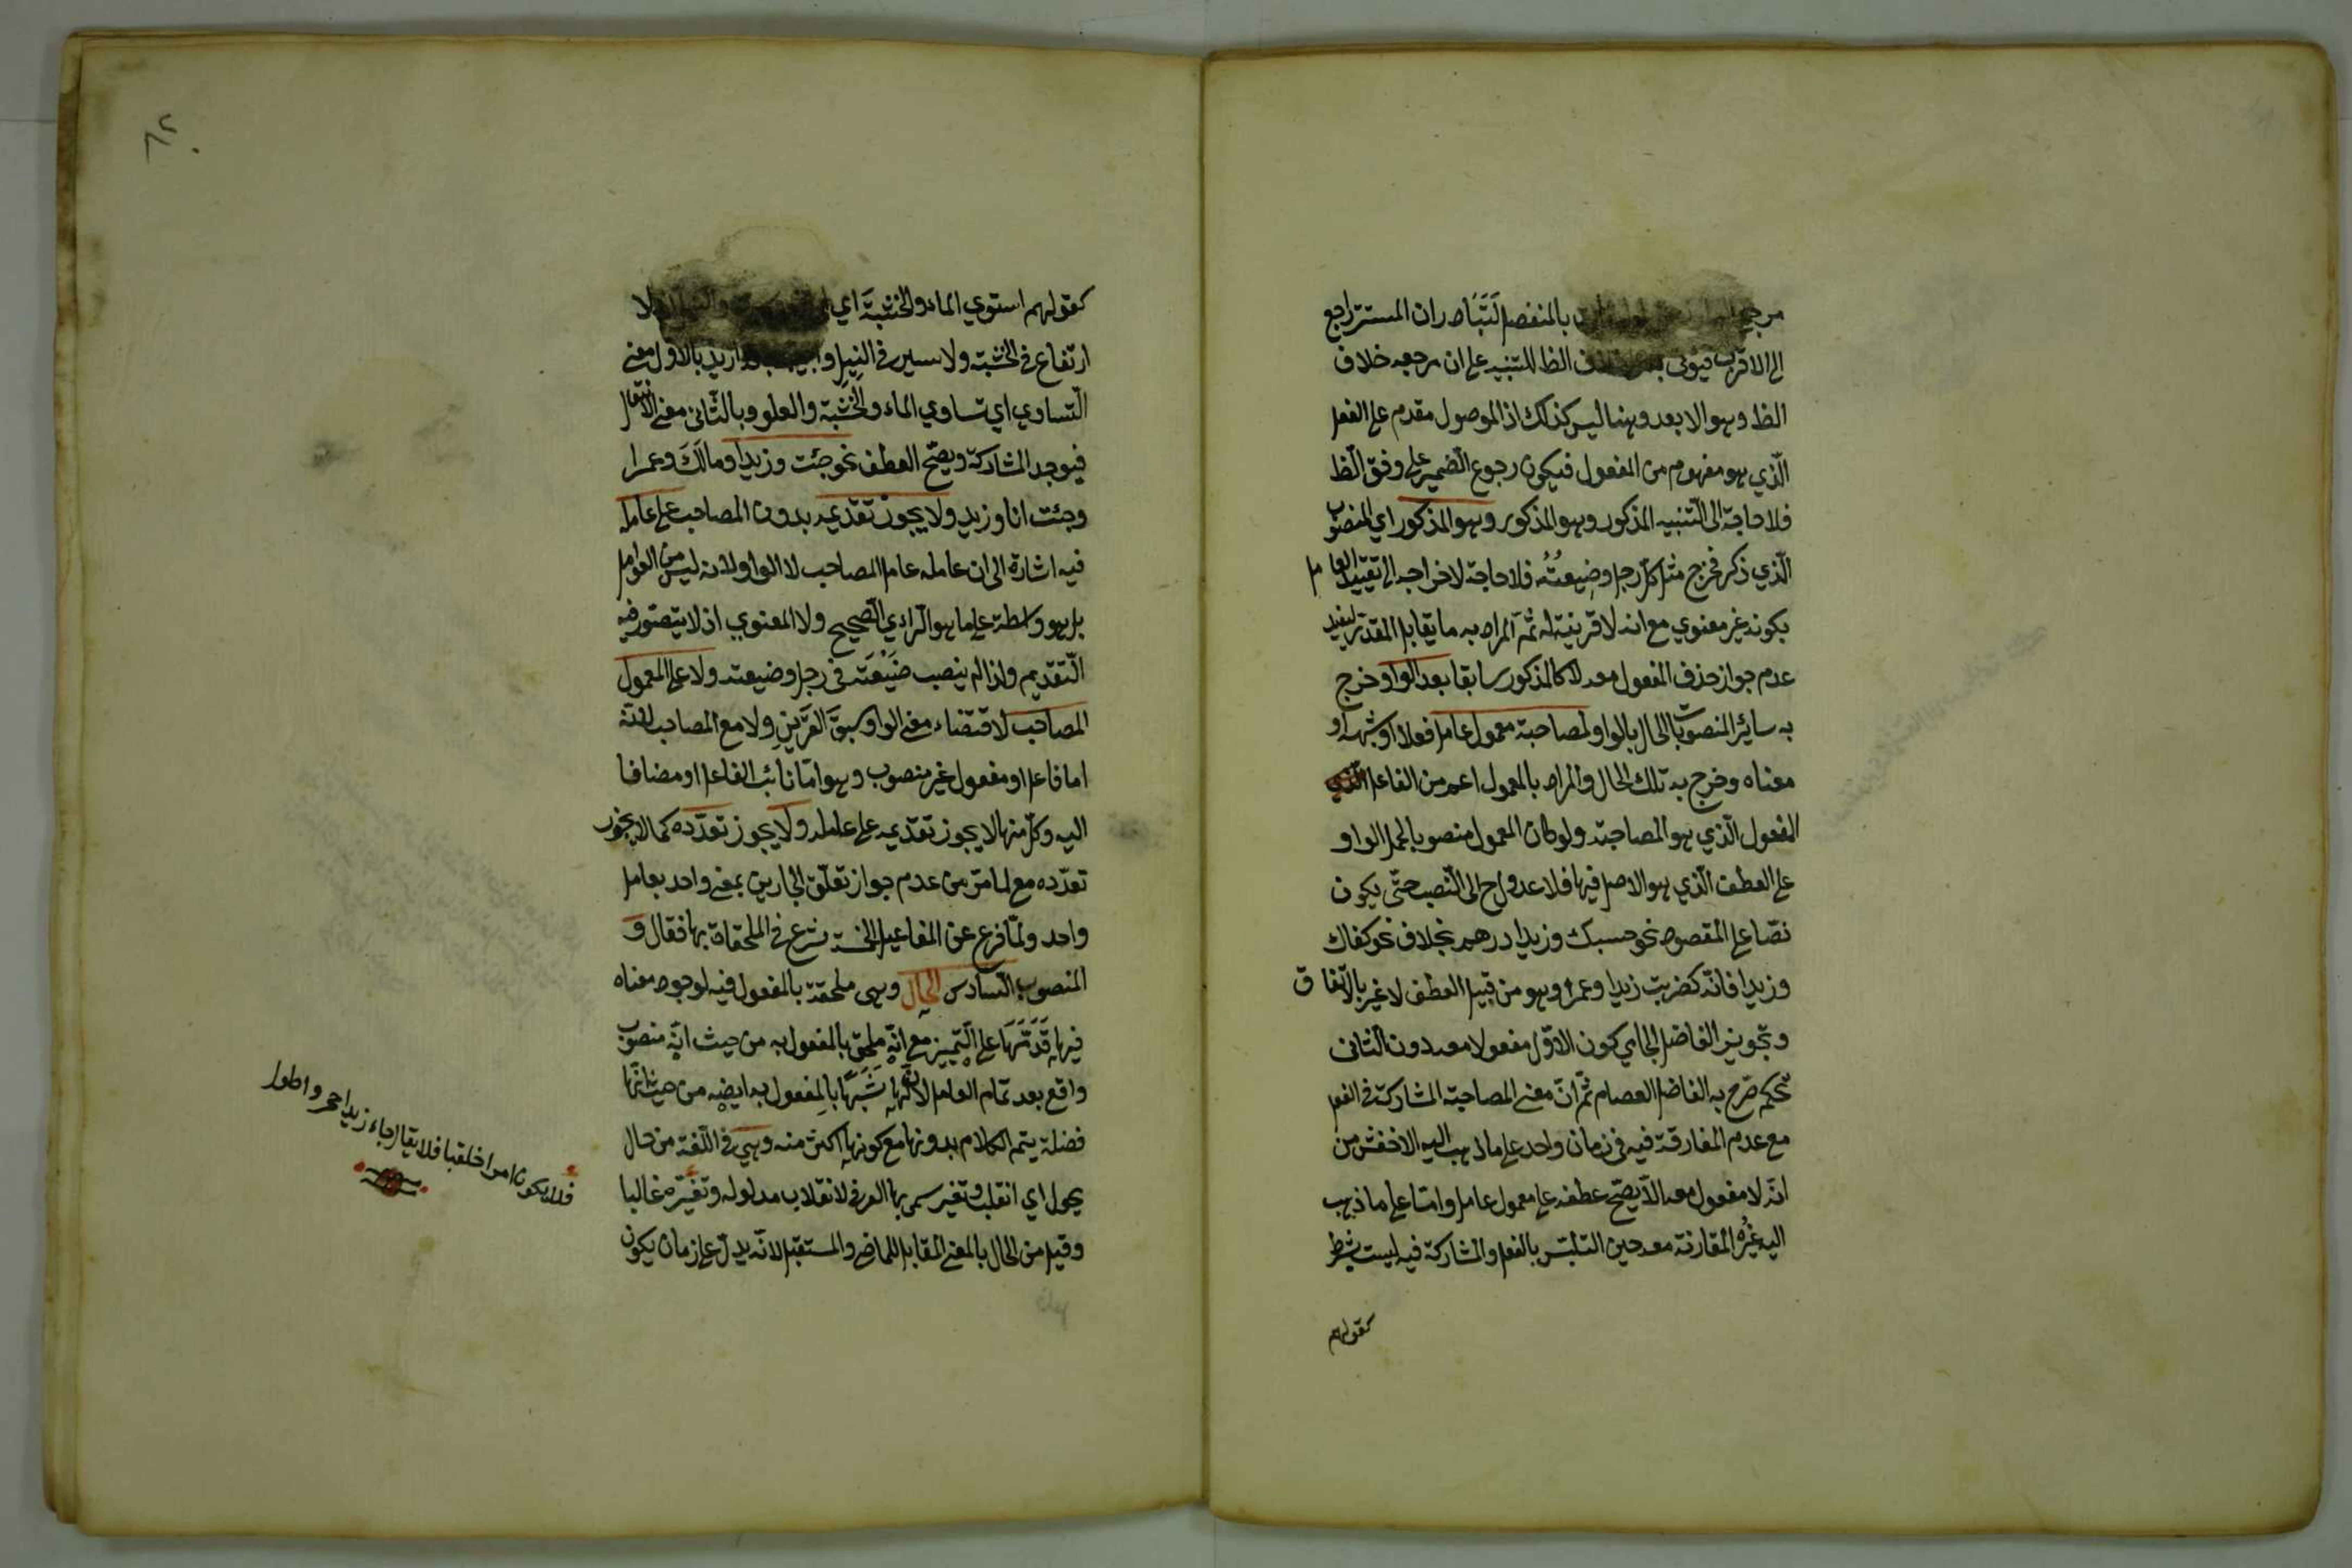 بالمنفصل لَتَبَادر ان المستتر راجع
الى الاقرب فيؤتى الظ للتنبيه على ان مرجعه خلاف
الظ وهو الابعد وهنا ليس كذلك اذ الموصول مقدم على الفعل
الّذي هو مفهوم من المفعول فيكون رجوع الضمير على وفق الظ
فلا حاجة الى التّنبيه المذكور وهو المذكور وهو المذكور اي المنصوب
الّذي ذكر فخرج مثل كلّ رجل وضيعتُه فلا حاجة لاخراجه الى تقييد العامل
بكونه غير معنوي مع انه لا قرينة له ثمّ المراد به ما يقابل المقدّر ليفيد
عدم جواز حذف المفعول معه لا كالمذكور سابقا بعد الواو وخرج
به سائر المنصوبات الحال بالواو لمصاحبة معمول عامل فعلا او شبهه او
معناه وخرج به تلك الحال والمراد بالمعمول اعم من الفاعل
المفعول الّذي هو المصاحبة ولو كان المعمول منصوبا لحمل الواو
على العطف الّذي هو الاصل فيها فلا عدول ح الى النّصب حتّى يكون
نصّا على المقصود نحو حسبك وزيدا درهم بخلاف نحو كفاك
وزيدا فانّه كضربت زيدا وعمرا وهو من قبيل العطف لا غير بالاتّفاق
وتجويز الفاضل الجامي كون الاوّل مفعولا معه دون الثّاني
تحكم صّرح به الفاضل العصام ثمّ انّ معنى المصاحبة المشاركة في الفعل
مع عدم المفارقة فيه في زمان واحد على ما ذهب اليه الاخفش من
انّه لا مفعول معه الّا يصحّ عطفه على معمول عامل وامّا على ما ذهب
اليه غيُره المقارنة معه حين التلبّس بالفعل والمشاركة فيه ليست بشرط
كقولهم
كقولهم استوي الماء والخشبةَ اي لا
ارتفاع في الخشبة ولا سير في النيل واريد بالاول معنى
التّساوي اي تساوي الماء والخشبة والعلو وبالثّاني معنى الانتقال
فيوجد المشاركة ويصّح العطف نحو جئت وزيدا ومالَكَ وعمرا
وجئت انا وزيد ولا يجوز تقدّيمه بدون المصاحب على عامله
فيه اشارة الى ان عامله عامل المصاحب لا الواو لانه ليس من العوامل
بل هو واسطة على ما هو الّراي الصّحيح ولا المعنوي اذ لا يتصّور فيه
الّتقديم واذا لم ينصب ضَيْعَته في رجل وضيعته ولا على المعمول
المصاحب لاقتضاء معنى الواو سبقَ القَرِينِ ولا مع المصاحب لانّه
اما فاعل او مفعول غير منصوب وهو امّا نائب الفاعل او مضافا
اليه وكلّ منها لا يجوز تقدّيمه على عامله ولا يجوز تعدّده كما لا يجوز
تعدّده مع لما مّر من عدم جواز تعلّق الجارين بمعنى واحد بعامل
واحد ولمّا فرغ عن المفاعيل الخمسة شرع في الملحقاة بها فقال و
المنصوب السّادس الحال وهى ملحقة بالمفعول فيه لوجود معناه
فيها قَدَّمَهَا على التّمييز مع انّه ملحق بالمفعول به من حيث انّه منصوب
واقع بعد تمام العامل لانّها شَبَهًا بالمفعول به ايضا من حيث انّها
فضلة يتم الكلام بدونها مع كونها اكثر منه وهي في اللّغة من حال
يحول اي انقلب وتغير سمى بها العرفي لانقلاب مدلوله وتغيّره غالبا
وقيل من الحال بالمعنى المقابل للماضي والمستقبل لانّه يدلّ على زمان يكون
فلا يكون امرا خلقيا فلا يقال جاء زيد احمر واطول